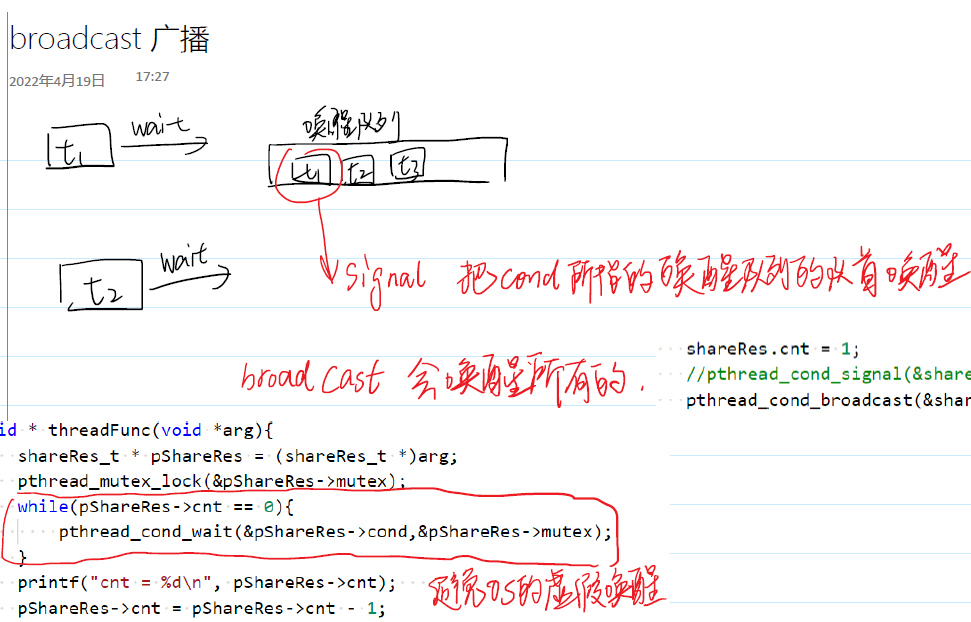 broadcast 广播
2022年4月19日 17:27
t1 wait
唤醒队列
t1 t2 t3
t2 wait
signal 把cond所指的唤醒队列的队首唤醒
broadcast 会唤醒所有的.
shareRes.cnt = 1;
//pthread_cond_signal(&share
pthread_cond_broadcast(&shar
id * threadFunc(void *arg){
shareRes_t * pShareRes = (shareRes_t *)arg;
pthread_mutex_lock(&pShareRes->mutex);
while(pShareRes->cnt == 0){
pthread_cond_wait(&pShareRes->cond,&pShareRes->mutex);
}
printf("cnt = %d\n", pShareRes->cnt);
避免OS的虚假唤醒
pShareRes->cnt = pShareRes->cnt - 1;